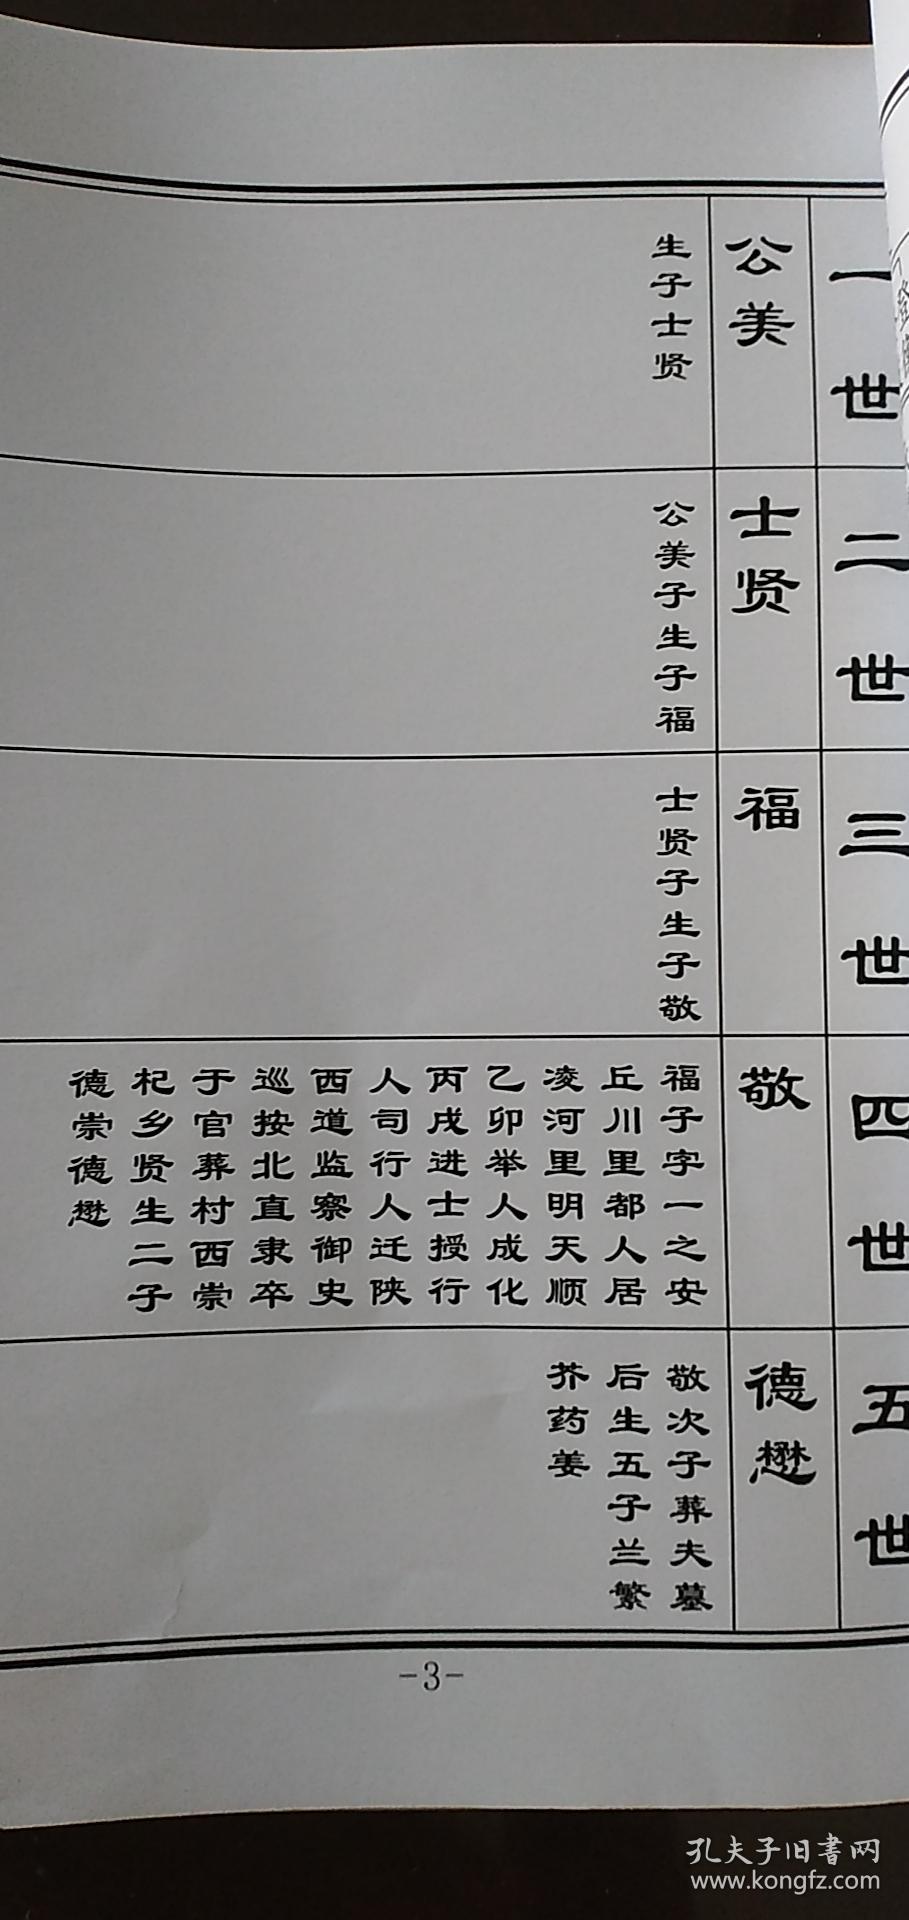 一世
公美
生子士贤
二世
士贤
公美子生子福
三世
福
士贤子生子敬
四世
敬
福子字一之安
丘川里都人居
凌河里明天顺
乙卯举人成化
丙戌进士授行
人司行人迁陕
西道监察御史
巡按北直隶卒
于官葬村西崇
杞乡贤生二子
德崇德懋
五世
德懋
敬次子葬夫墓
后生五子兰繁
芥药姜
-3-
孔夫子旧书网
www.kongfz.com